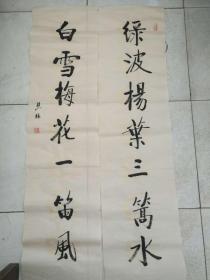 绿波楊葉三篙水
白雪梅花一笛風